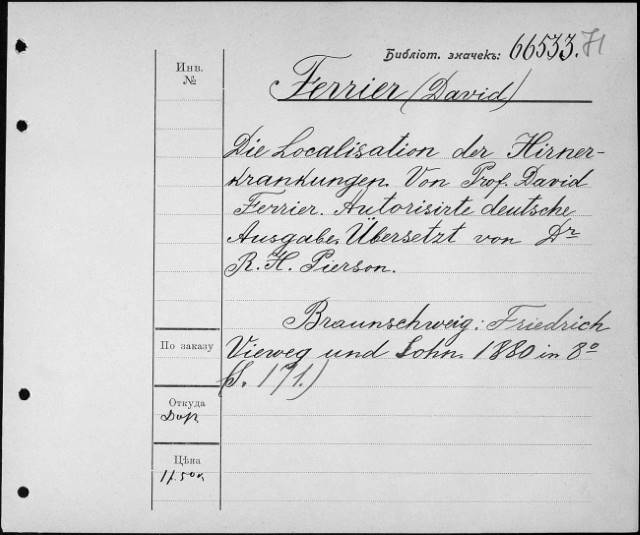 Библіот. значекъ: 66533. 71
Инв.
№
Ferrier (David)
Die Localisation der Hirner-
krankungen. Von Prof. David
Ferrier. Autorisirte deutsche
Ausgabe. Übersetzt von Dr
R. H. Pierson.
Braunschweig: Friedrich
По заказу
Vieweg und Sohn. 1880 in 8°
(S. 171.)
Откуда
Цѣна